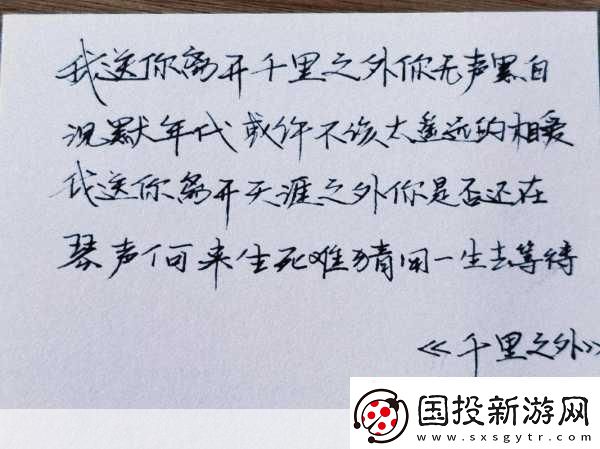 我送你离开千里之外你无声黑白
沉默年代或许不该太遥远的相爱
我送你离开天涯之外你是否还在
琴声何来生死难猜用一生去等待
《千里之外》
国投新游网
www.sxsgytr.com